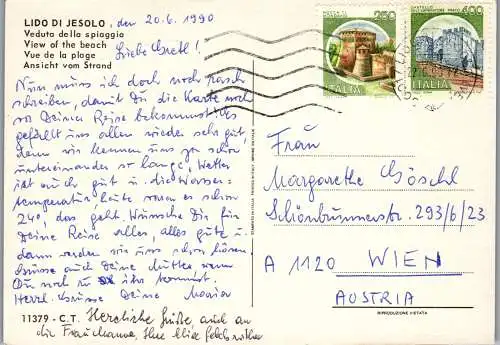 LIDO DI JESOLO, den 20.6.1990
Veduta della spiaggia
View of the beach
Vue de la plage
Ansicht vom Strand
Liebe Gretl!
Nun muss ich doch noch rasch
schreiben, damit Du die Karte noch
vor Deiner Reise bekommst. Es
gefällt uns allen wieder sehr gut,
denn wir kennen uns ja schon
untereinander so lange, Wetter
ist auch gut u. die Wasser-
temperatur heute waren es schon
24°, das geht. Wünsche Dir für
Deine Reise alles, alles gute u.
dann werden wir uns schon hören
Grüsse auch Deine Mutter wenn
Du noch zu ihr kommst.
Herzl. Grüsse Deine Maria
11379 - C.T. Herzliche Grüße auch an
die
250
ITALIA
400
ITALIA
Frau
Margarethe Göschl
Schönbrunnerstr. 293/6/23
A 1120 WIEN
AUSTRIA
RIPRODUZIONE VIETATA